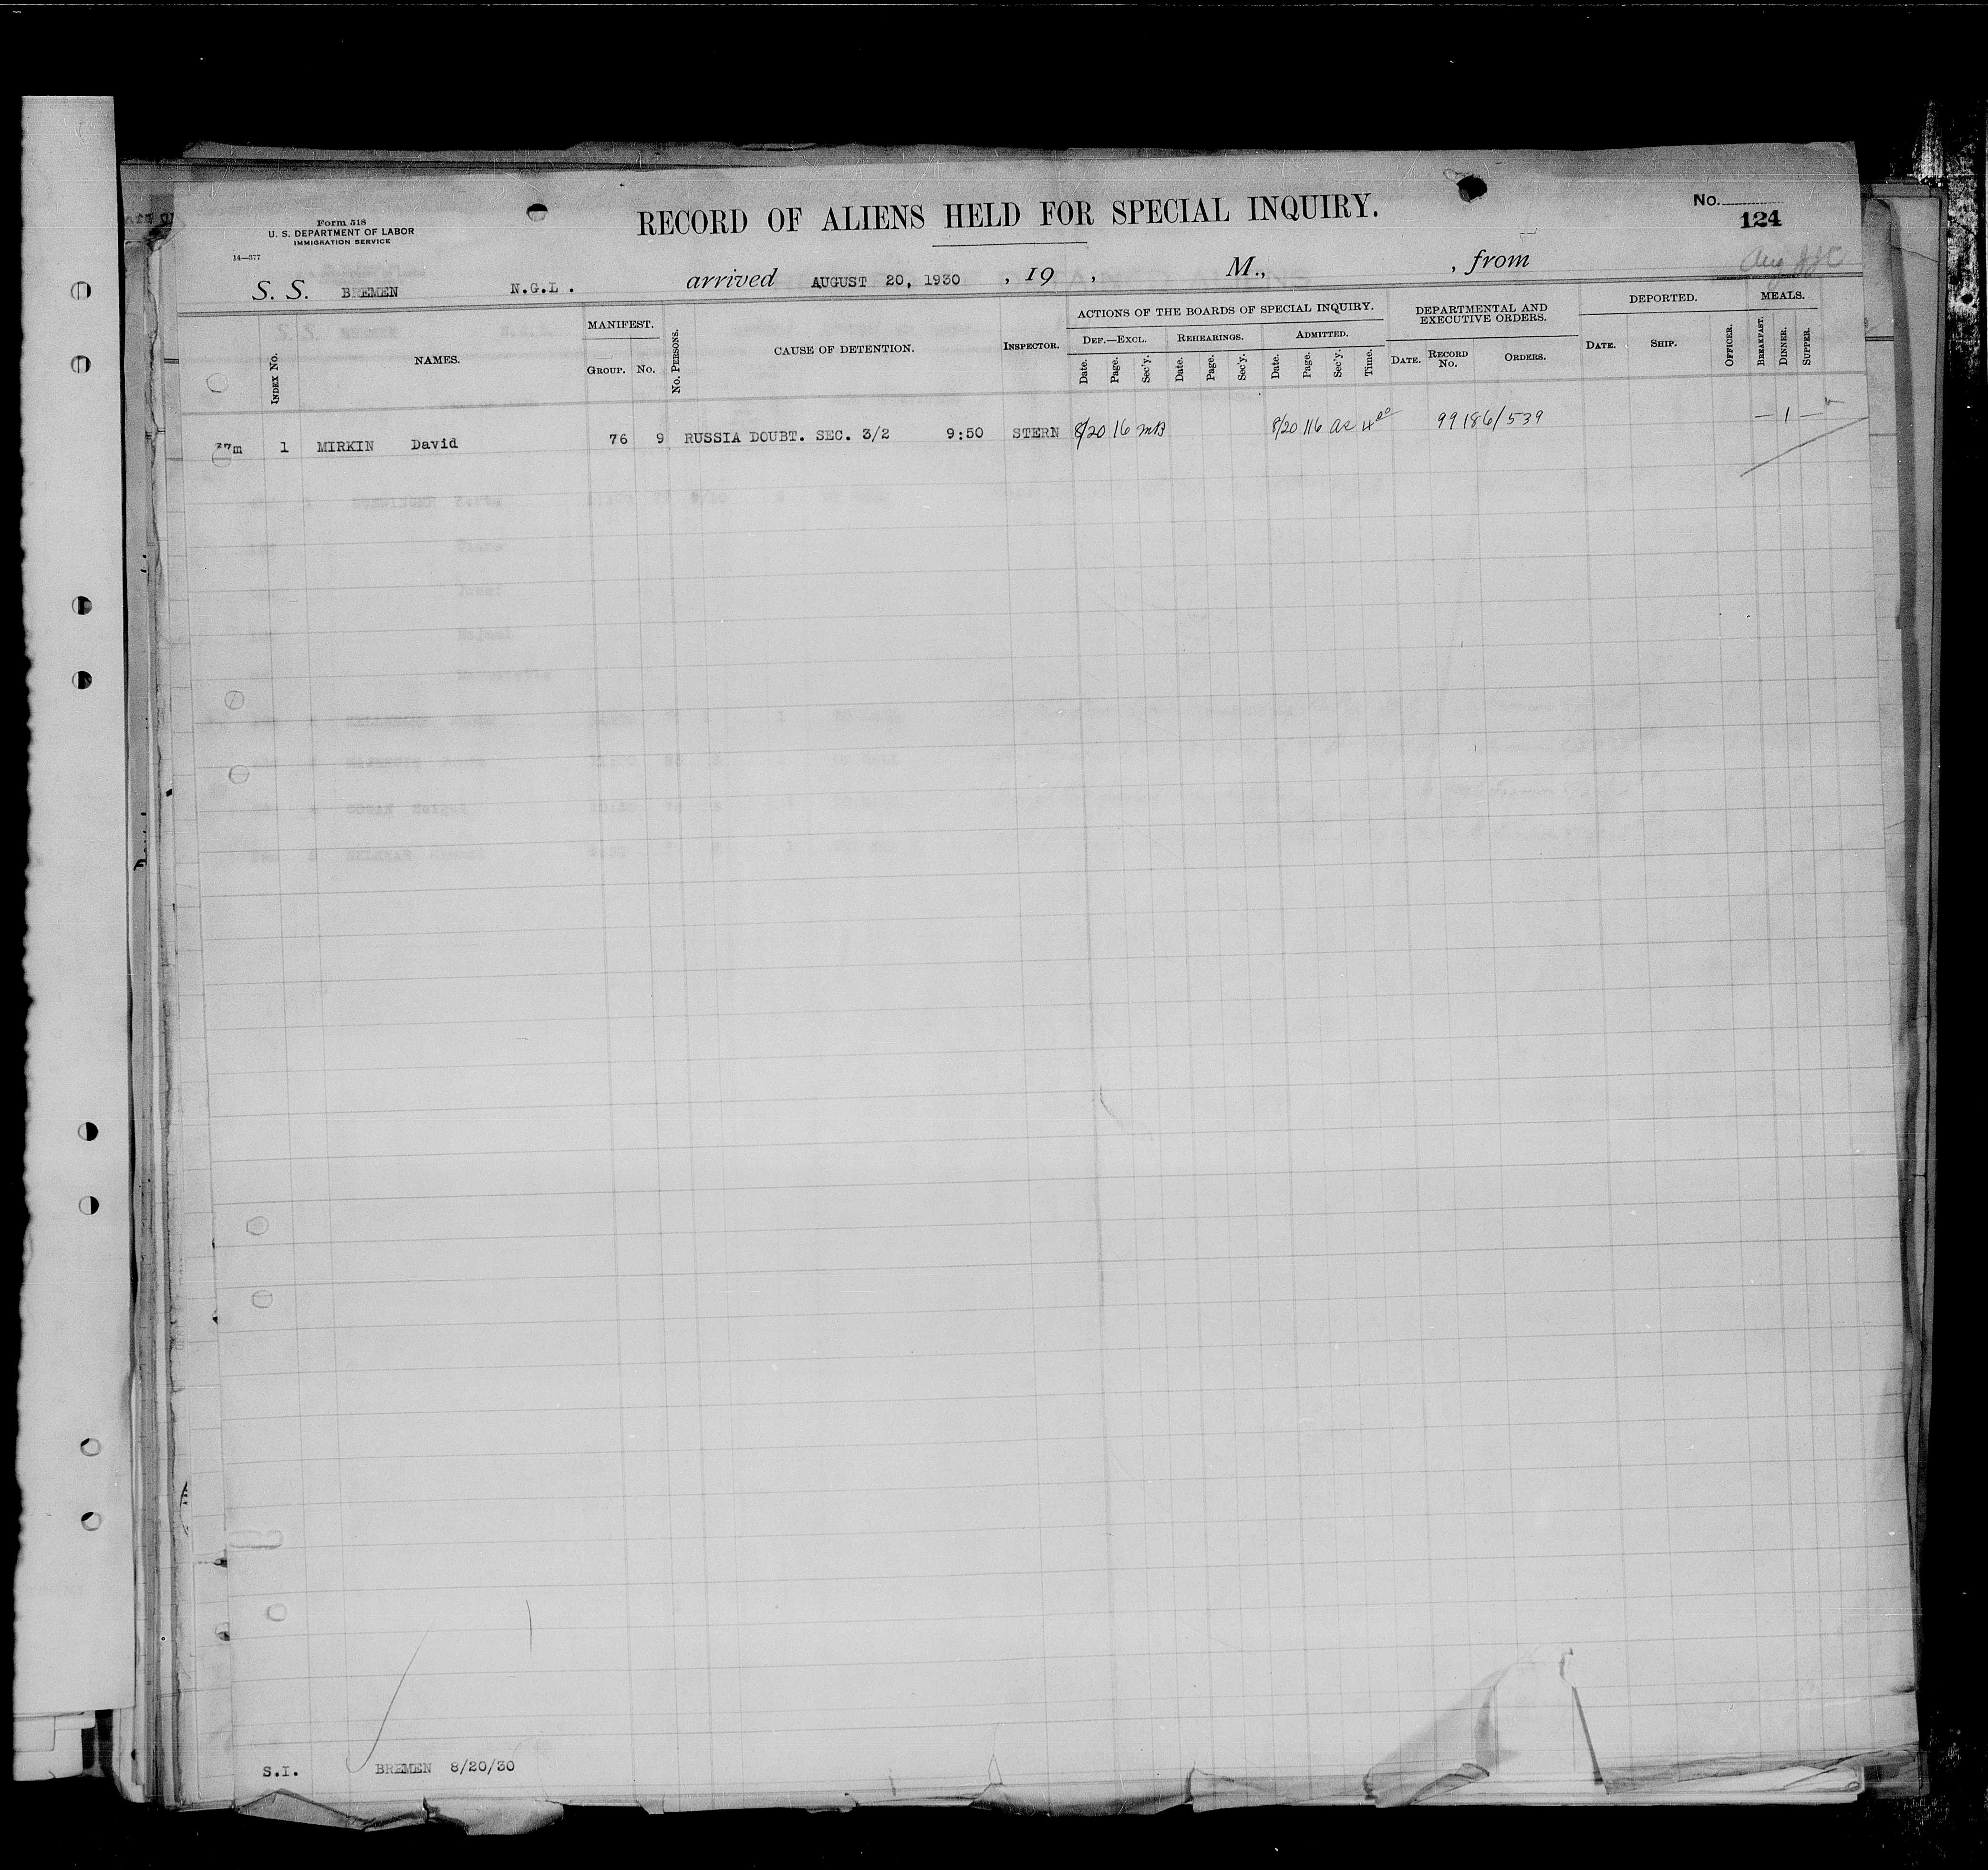 Form 518
U. S. DEPARTMENT OF LABOR
IMMIGRATION SERVICE
14—377
RECORD OF ALIENS HELD FOR SPECIAL INQUIRY.
No.
124
S. S. BREMEN N.G.L. arrived AUGUST 20, 1930 , 19 , M., , from
INDEX NO.
NAMES.
MANIFEST.
GROUP. NO.
NO. PERSONS.
CAUSE OF DETENTION.
INSPECTOR.
ACTIONS OF THE BOARDS OF SPECIAL INQUIRY.
DEF.—EXCL. REHEARINGS. ADMITTED.
Date. Page. Sec'y. Date. Page. Sec'y. Date. Page. Sec'y. Time.
DEPARTMENTAL AND
EXECUTIVE ORDERS.
DATE. RECORD NO. ORDERS.
DEPORTED.
DATE. SHIP. OFFICER.
MEALS.
BREAKFAST. DINNER. SUPPER.
1 MIRKIN David 76 9 RUSSIA DOUBT. SEC. 3/2 9:50 STERN 8/20 16 8/20 116 4 00 99186/539 — 1 —
S.I. BREMEN 8/20/30